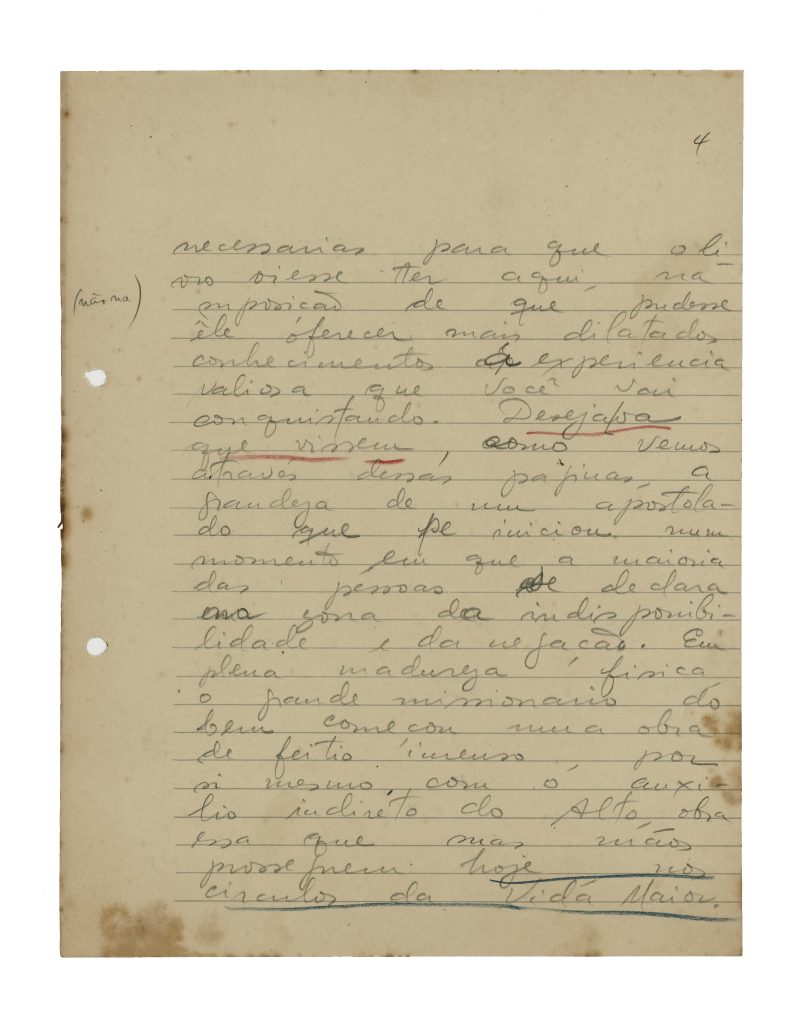 4
necessarias para que o li-
vro viesse ter aqui, na
(não na)
imposicão de que pudesse
êle oferecer mais dilatados
conhecimentos á experiencia
valiosa que você vai
conquistando. Desejava
que vissem, como vemos
através dessas páginas, a
grandeza de um apóstola-
do que se iniciou num
momento em que a maioria
das pessôas se declara
na zona da indisponibi-
lidade e da negacão. Em
plena madureza fisica,
o grande missionario do
bem começou uma obra
de feitio imenso, por
si mesmo, com o auxi-
lio indireto do Alto, obra
essa que suas mãos
prosseguem hoje nos
circulos da Vida Maior.